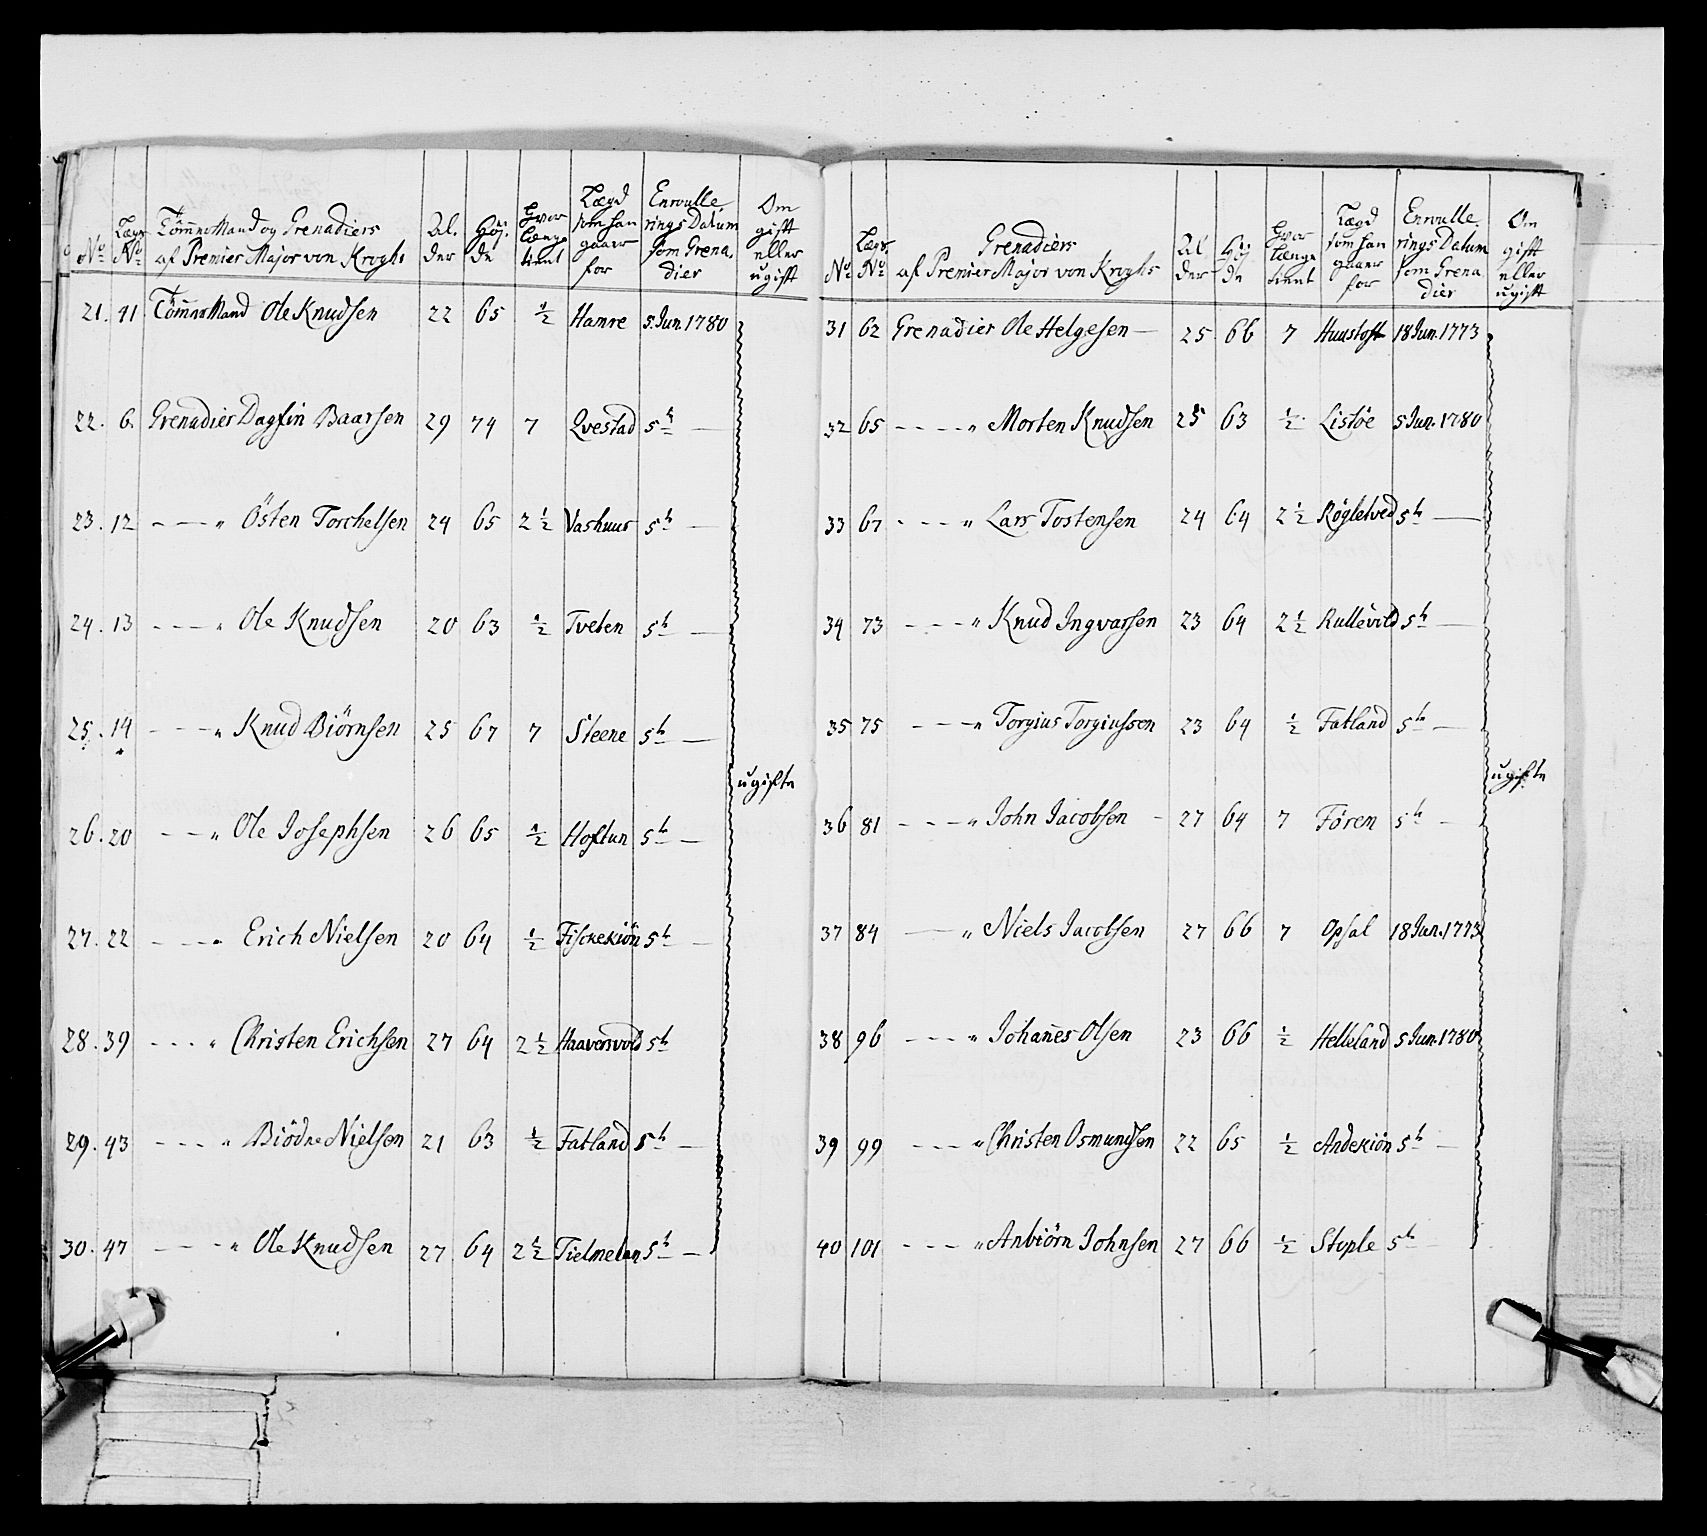 No Lægs No Tömmermand og Grenadiers af Premier Major von Kroghs Al. der Höj. de Hvor længe tient Lægd som han gaaer for Enroulle. rings Datum som Grena. dier Om gift eller ugift
21. 41 Tömmermand Ole Knudsen 22 65 ½ Hamre 5 Jun. 1780
22. 6. Grenadier Dagfin Baarsen 29 74 7 Qvestad 5te —
23. 12 - - - „ Östen Torchelsen 24 65 2½ 5te —
24. 13 - - - „ Ole Knudsen 20 63 ½ Tveten 5te —
25. 14 - - - „ Knud Biörnsen 25 67 7 Steene 5te —
ugifte
26. 20 - - - „ Ole Josephsen 26 65 ½ Hoftun 5te —
27. 22 - - - „ Erich Nielsen 20 64 ½ Fiskekiön 5te —
28. 39 - - - „ Christen Erichsen 27 64 2½ Haaversvold 5te
29. 43 - - - „ Biödne Nielsen 21 63 ½ Fatland 5te —
30. 47 - - - „ Ole Knudsen 27 64 2½ Tielmelan 5te —
No Lægs No Grenadiers af Premier Major von Kroghs Al der Höj de Hvor længe tient Lægd som han gaaer for Enroulle. rings Datum som Grena dier Om gift eller ugift
31 62 Grenadier Ole Helgesen — 25 66 7 18 Jun. 1773
32 65 - - - - „ Morten Knudsen 25 63 ½ Listöe 5 Jun. 1780
33 67 - - - „ Lars Tostensen 24 64 2½ Rögletved 5te —
34 73 - - - „ Knud Ingvarsen 23 64 2½ Kullevild 5te —
35 75 - - - „ Torgius Torgiussen 23 64 ½ Fatland 5te —
ugifte
36 81 - - - „ John Jacobsen - 27 64 7 Fören 5te —
37 84 — „ Niels Jacobsen 27 66 7 Opsal 18 Jun. 1773
38 96 - - - „ Johanes Olsen 23 66 ½ Helleland 5 Jun. 1780
39 99 - - - „ Christen Osmundsen 22 65 ½ Andekiön 5te —
40 101 - - - „ Anbiörn Johnsen 27 66 ½ Stople 5te —